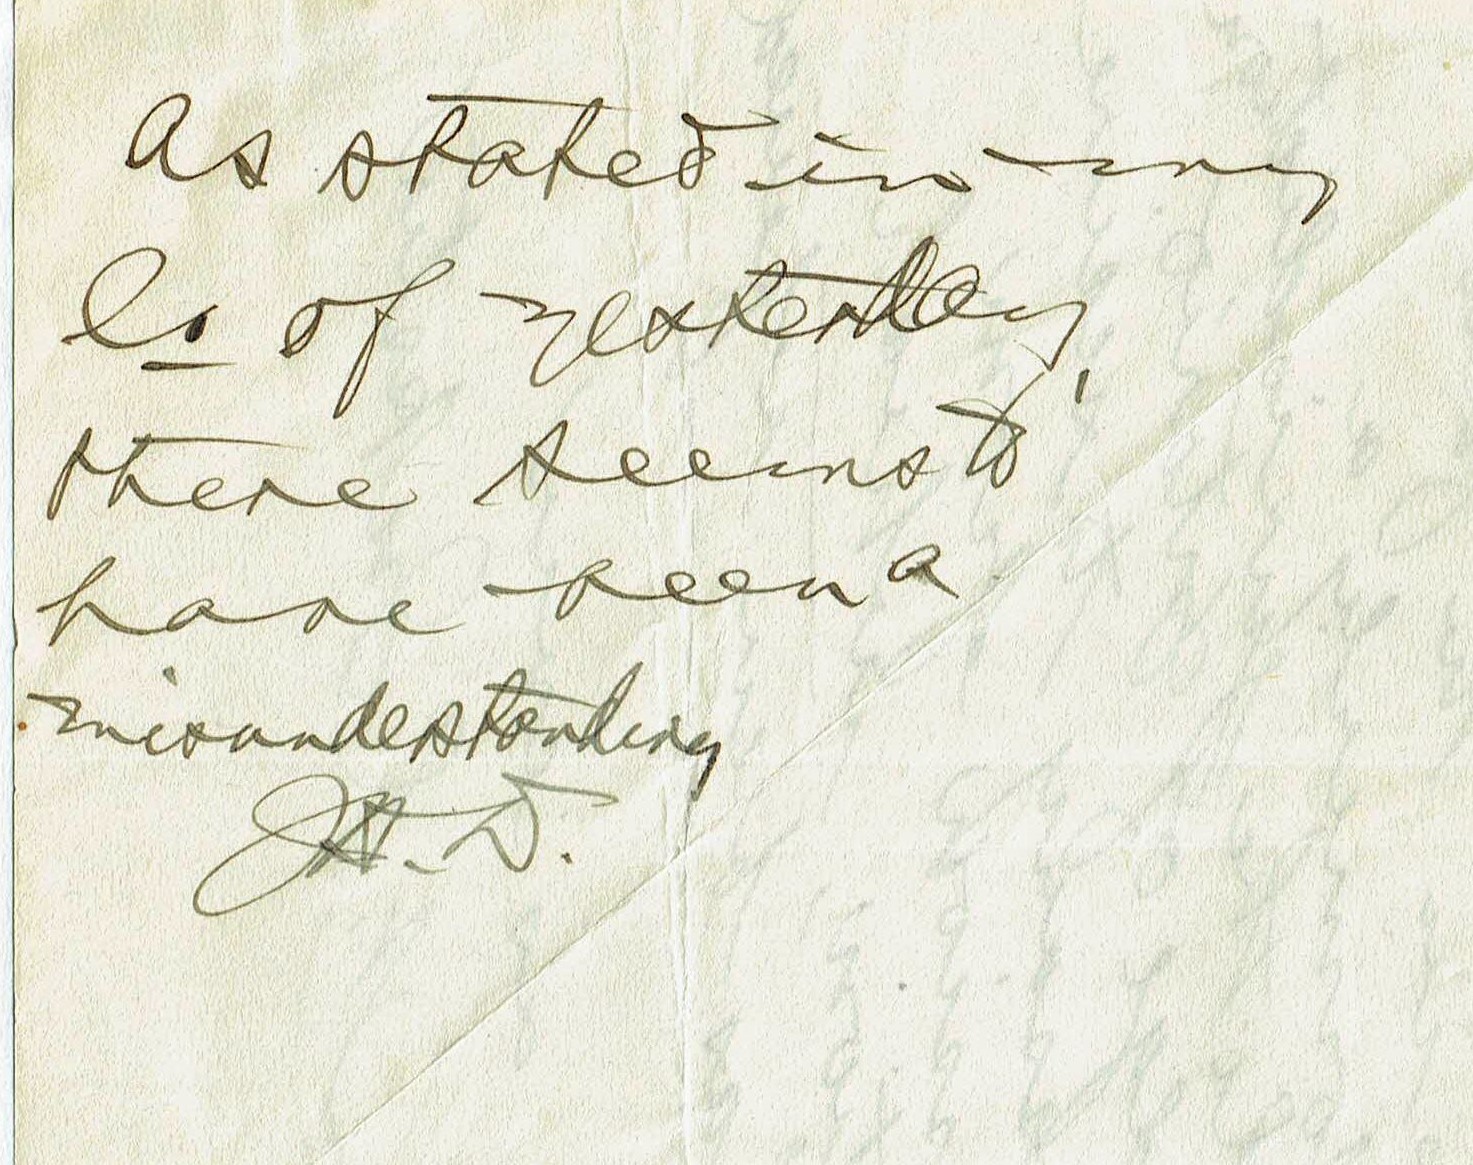 As stated in my
of yesterday,
there seems to
have been a
misunderstanding
J.H.D.